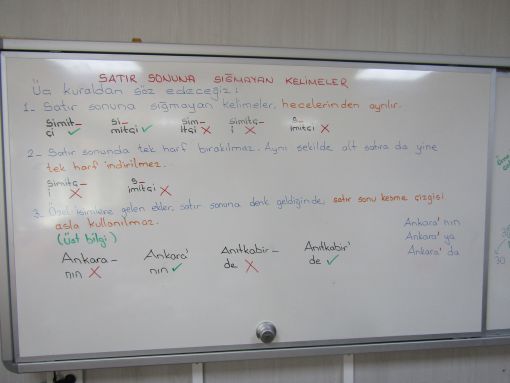 SATIR SONUNA SIĞMAYAN KELİMELER
Üç kuraldan söz edeceğiz:
1- Satır sonuna sığmayan kelimeler, hecelerinden ayrılır.
simit- si- sim- simitç- s-
çi ✓ mitçi ✓ itçi ✗ i ✗ imitçi ✗
2- Satır sonunda tek harf bırakılmaz. Aynı şekilde alt satıra da yine
tek harf indirilmez.
simitç- s-
i ✗ imitçi ✗
3- Özel isimlere gelen ekler, satır sonuna denk geldiğinde, satır sonu kesme çizgisi
asla kullanılmaz.
(üst bilgi)
Ankara- Ankara' Anıtkabir- Anıtkabir'
nın ✗ nın ✓ de ✗ de ✓
Ankara'nın
Ankara'ya
Ankara'da
30